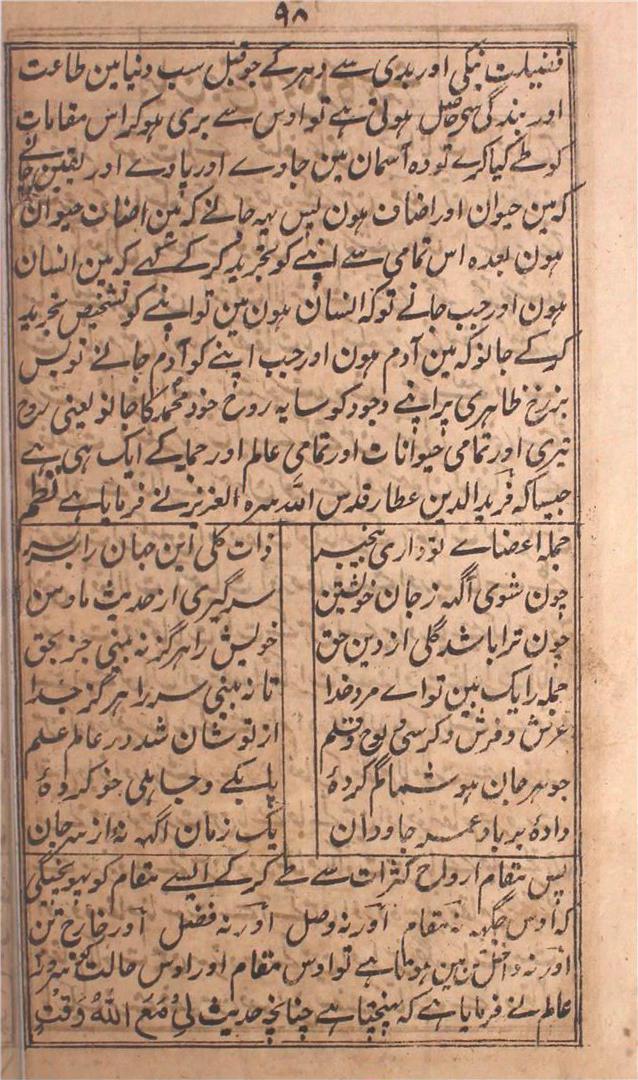 ۹۸
فضیلت نیکی اور بدی سے دہر کے جو قبل سب دنیا مین طاعت
اور بندگی سے حاصل ہوئی ہے تو اوس سے بری ہو کر اس مقامات
کو طے کیا کرے تو وہ آسمان مین جاوے اور پاوے اور یقین جانے
کہ مین حیوان اور اضاف ہون پس یہہ جانے کہ مین اضاف حیوان
ہون بعدہ اس تمامی سے اپنے کو تجرید کر کے کہے کہ مین انسان
ہون اور جب جانے تو کہ انسان ہون مین تو اپنے کو تشخیص تجرید
کر کے جانو کہ مین آدم ہون اور جب اپنے کو آدم جانے تو بس
بزرخ ظاہری پر اپنے وجود کو سایہ روح خود محمد کا جانو یعنی روح
تیری اور تمامی حیوانات اور تمامی عالم اور جما کے ایک ہی ہے
جیسا کہ فرید الدین عطار قدس اللہ سرہ العزیز نے فرمایا ہے نظم
جملہ اعضاے تو داری بیخبر ذات کلی این جان را بسر
چون شوی آگہ ز جان خویشتن سر گیری از حدیث ما و من
چون ترا باشد گلی از دین حق خویش را ہرگز نہ بینی جز بحق
جملہ را یک بین تو اے مرد خدا تا نہ بینی سر را ہرگز جدا
عرش و فرش و کرسی و لوح و قلم از تو شان شد در عالم علم
جوہر جان ہو شما گم کردۂ پلیکے و جاہلی خو کردۂ
دادۂ برباد عمر جاودان یک زمان آگہ نہ از سر جان
پس مقام ارواح کثرات سے طے کر کے ایسے مقام کو پہونچیگی
کہ اوس جگہہ نہ مقام اور نہ وصل اور نہ فضل اور خارج تن
اور نہ داخل تن مین ہوتا ہے تو اوس مقام اور اوس حالت کو سرور
عالم نے فرمایا ہے کہ پہنچتا ہے چنانچہ حدیث لِیْ مَعَ اللہُ وَقْتٌ